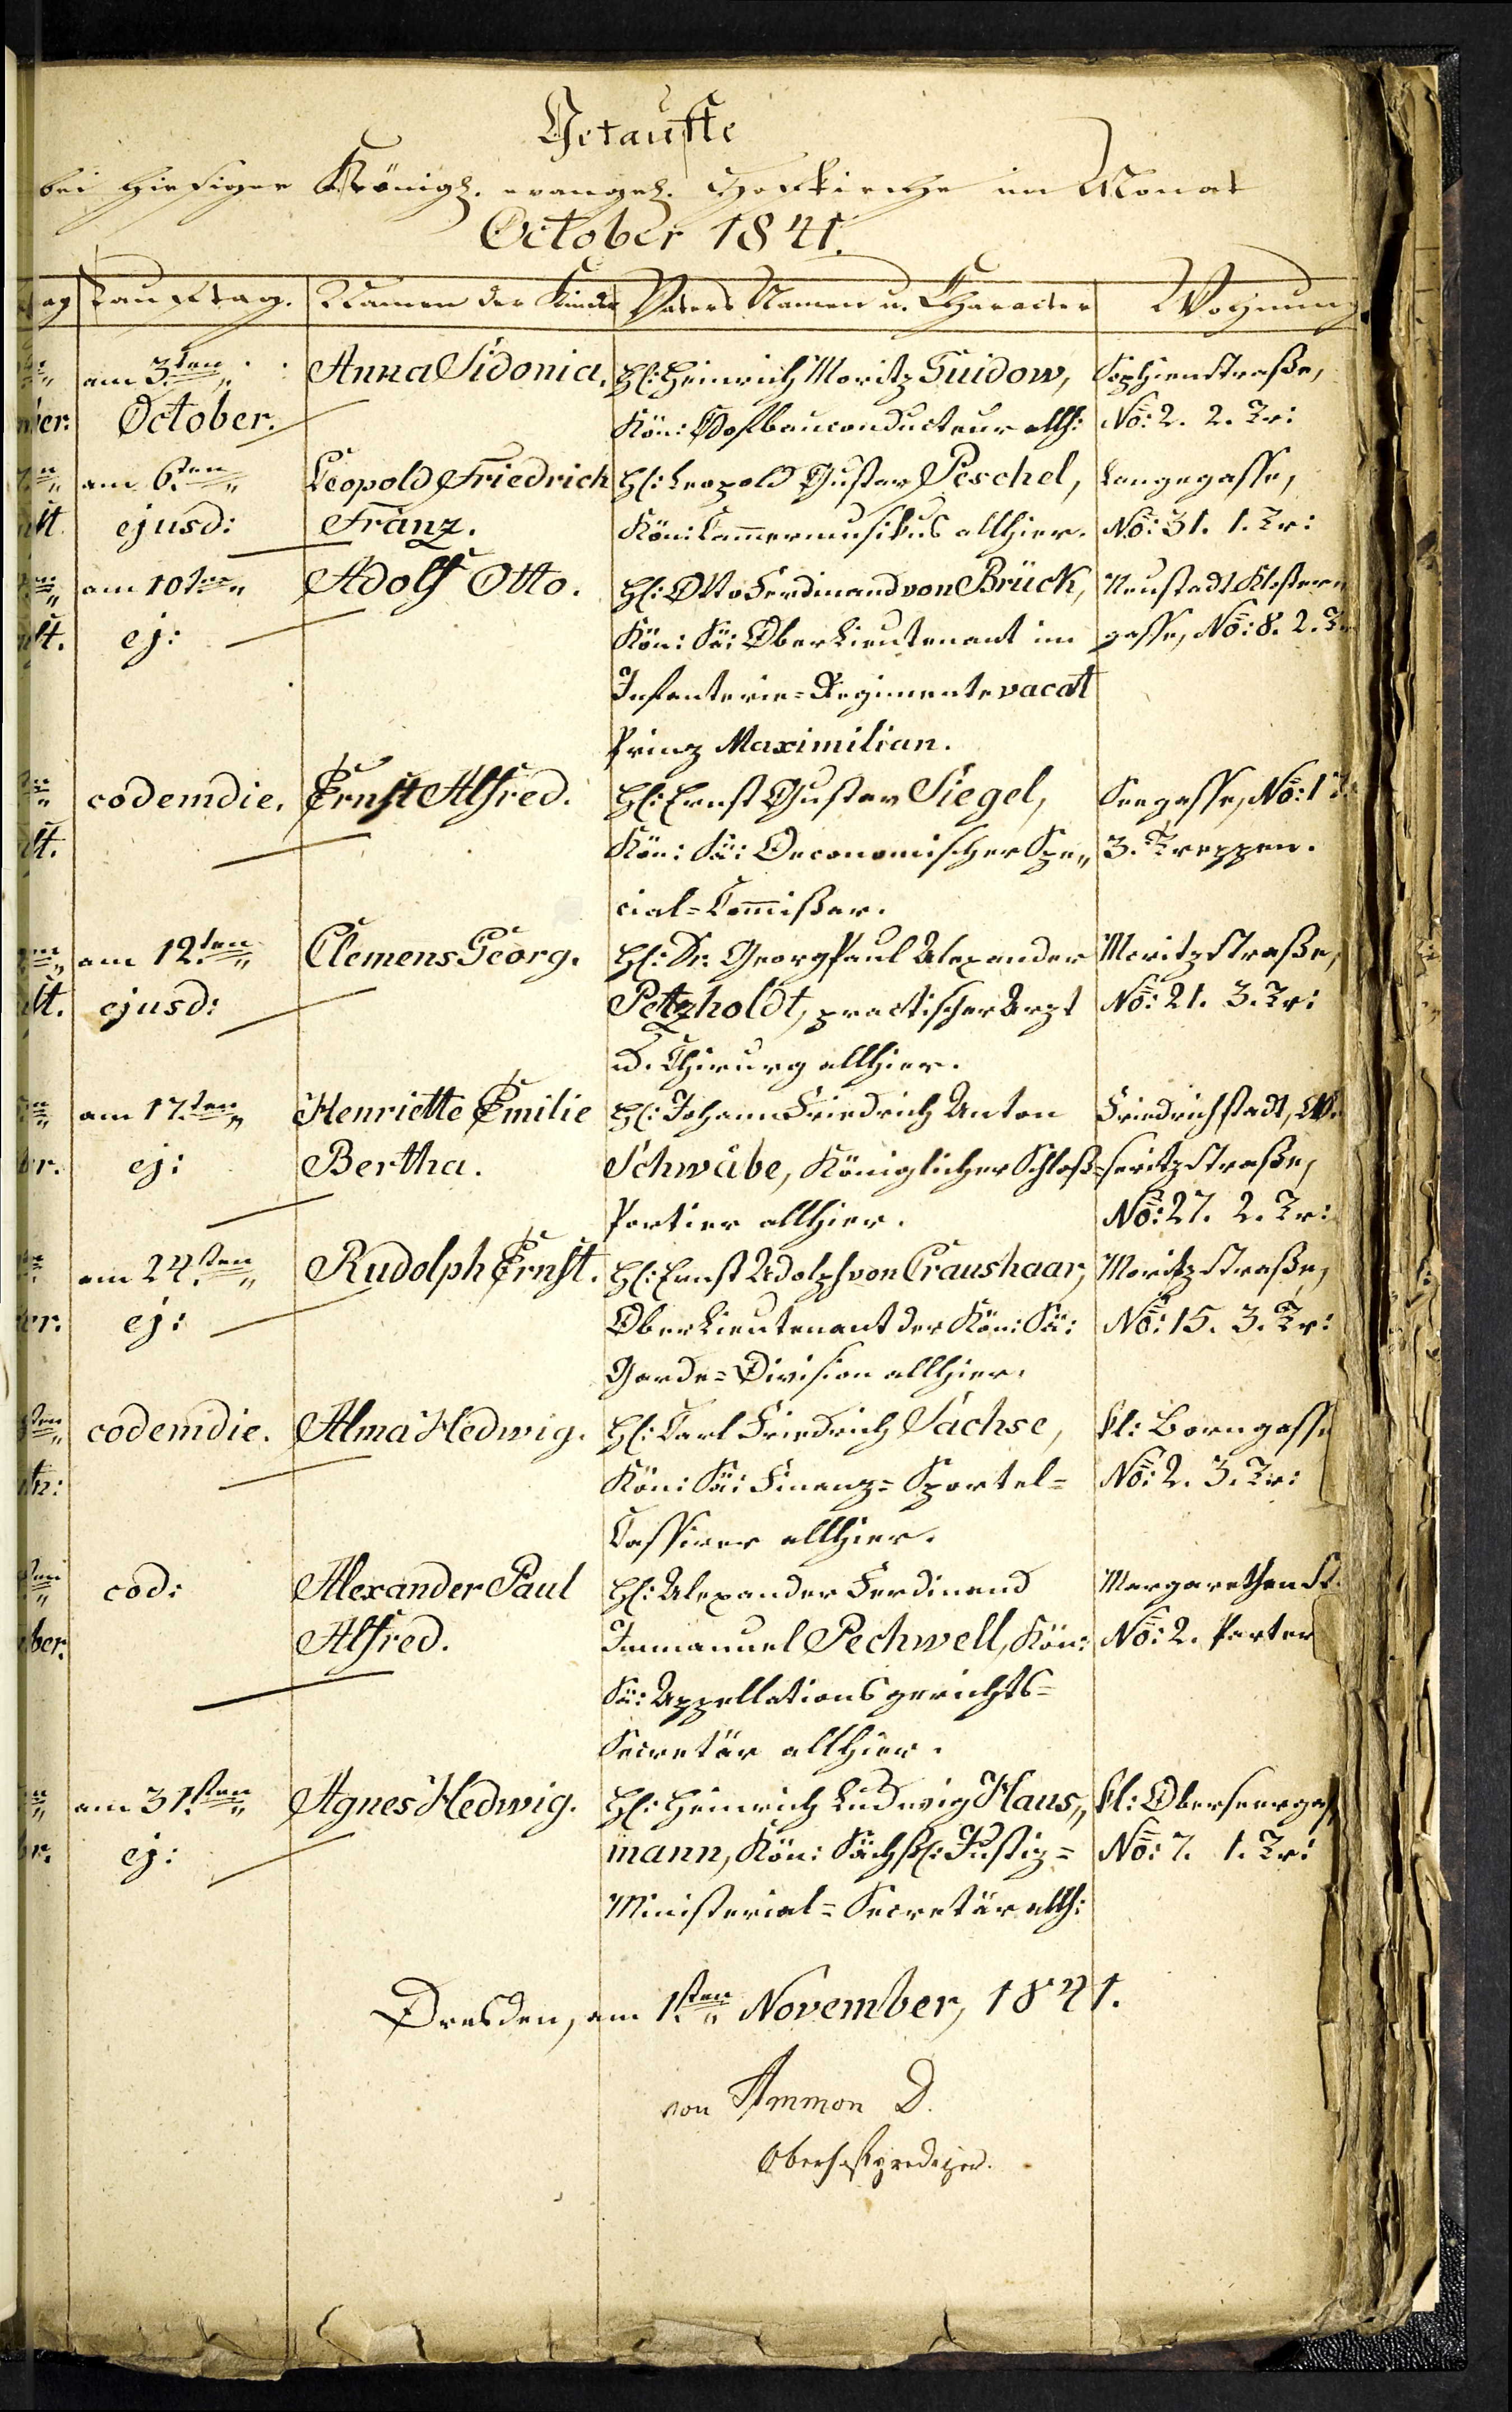 Getaufte
bei hiesiger Königl. evangel. Hofkirche im Monat
October 1841.
ag Tauftag. Namen der Kinder Vaters Namen u. Character Wohnung
am 3ten Anna Sidonia. H: Heinrich Moritz Guidow, Sophienstraße,
October. Kön: Hofbauconducteur allh: No: 2. 2. Tr:
am 6ten Leopold Friedrich H: Leopold Gustav Peschel, Langegasse,
ejusd: Franz. Kön: Kammermusikus allhier. No: 31. 1. Tr:
am 10ten Adolf Otto. H: Otto Ferdinand von Brück, Neustadt Klostern
ej: Kön: Sä: Ober Lieutenant im gasse, No: 8. 2. Tr
Infanterie=Regimente vacat
Prinz Maximilian.
eodem die. Ernst Alfred. H: Ernst Gustav Siegel, Seegasse, No: 17.
Kön: Sä: Oeconomischer Spe„ 3. Treppen.
cial=Commißar.
am 12ten Clemens Georg. H: Dr. Georg Paul Alexander Moritzstraße,
ejusd: Petzholdt, practischer Arzt No: 21. 3. Tr:
u. Chirurg allhier.
am 17ten Henriette Emilie H: Johann Friedrich Anton Friedrichstadt, We
ej: Bertha. Schwäbe, Königlicher Schloß= seritzstraße,
Portier allhier. No: 27. 2. Tr:
am 24sten Rudolph Ernst. H: Ernst Adolph von Craushaar, Moritzstraße,
ej: Ober Lieutenant der Kön: Sä: No: 15. 3. Tr:
Garde=Division allhier.
eodem die. Alma Hedwig. H: Carl Friedrich Sachse, kl: Borngasse
Kön: Sä: Finanz=Sportel= No: 2. 3. Tr:
Cassirer allhier.
eod: Alexander Paul H: Alexander Ferdinand Margarethenst.
ber. Alfred. Immanuel Pechwell, Kön: No: 2. Parter
Sä: Appellationsgerichts=
Secretär allhier.
am 31sten Agnes Hedwig. H: Heinrich Ludwig Haus„ kl: Oberseergas
ej: mann, Kön: Sächß: Justiz= No: 7. 1. Tr:
Ministerial=Secretär allh:
Dresden, am 1sten November, 1841.
von Ammon D.
Oberhofprediger.